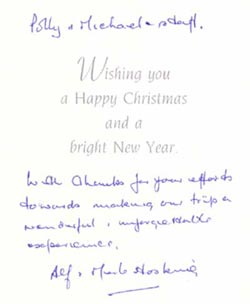 Polly + Michael + staff.
Wishing you
a Happy Christmas
and a
bright New Year.
With thanks for your efforts
towards making our trip a
wonderful + unforgettable
experience.
Alf + Merle Hosking